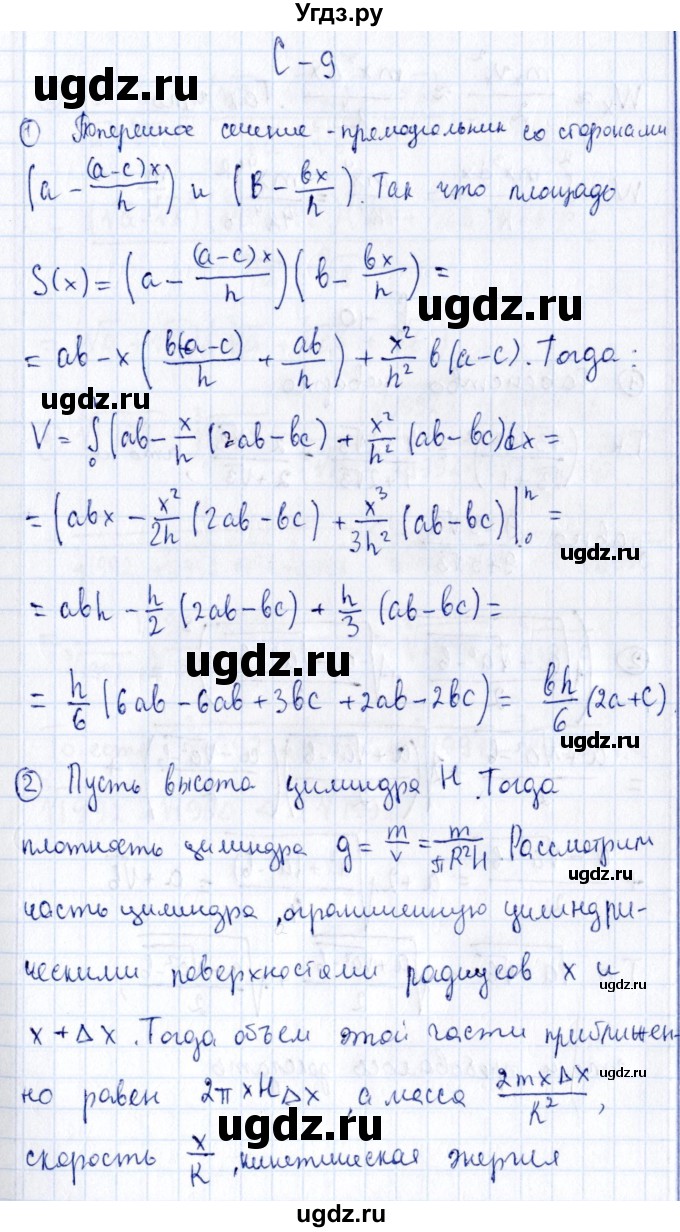 Угдз.ру
С – 9
ugdz.ru
① Поперечное сечение - прямоугольник со сторонами
(a - (a-c)x/h) и (b - bx/h). Так что площадь
S(x) = (a - (a-c)x/h)(b - bx/h) =
ugdz.ru
= ab - x(b(a-c)/h + ab/h) + x²/h² b(a-c). Тогда:
ugdz.ru
V = ∫₀ (ab - x/h (2ab - bc) + x²/h² (ab - bc)dx =
= (abx - x²/2h (2ab - bc) + x³/3h² (ab - bc)|₀ʰ =
ugdz.ru
= abh - h/2 (2ab - bc) + h/3 (ab - bc) =
ugdz.ru
= h/6 (6ab - 6ab + 3bc + 2ab - 2bc) = bh/6 (2a + c)
② Пусть высота цилиндра H. Тогда
ugdz.ru
плотность цилиндра g = m/v = m/πR²H. Рассмотрим
часть цилиндра, ограниченную цилиндри-
ugdz.ru
ческими поверхностями радиусов x и
ugdz.ru
x + Δx. Тогда объем этой части приближен-
но равен 2πxHΔx, а масса 2mxΔx/R²,
ugdz.ru
скорость x/R, кинетическая энергия
ugdz.ru
ugdz.ru